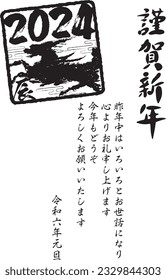 謹賀新年
2024
辰
昨年中はいろいろとお世話になり
心よりお礼申し上げます
今年もどうぞ
よろしくお願いいたします
令和六年元旦
shutterstock.com · 2329844303